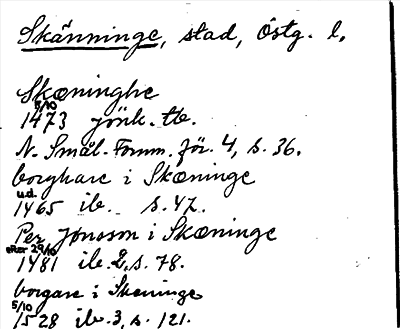 Skänninge, stad, Östg. l.
Skæninghe
5/10
1473 jönk. tb.
N. Smål. Fornm. för. 4, s. 36.
borghare i Skæninge
u.d.
1465 ib. s. 47.
Per Jonsson i Skæninge
efter 29/10
1481 ib. 2, s. 78.
borgare i Skeninge
5/10
1528 ib. 3, s. 121.